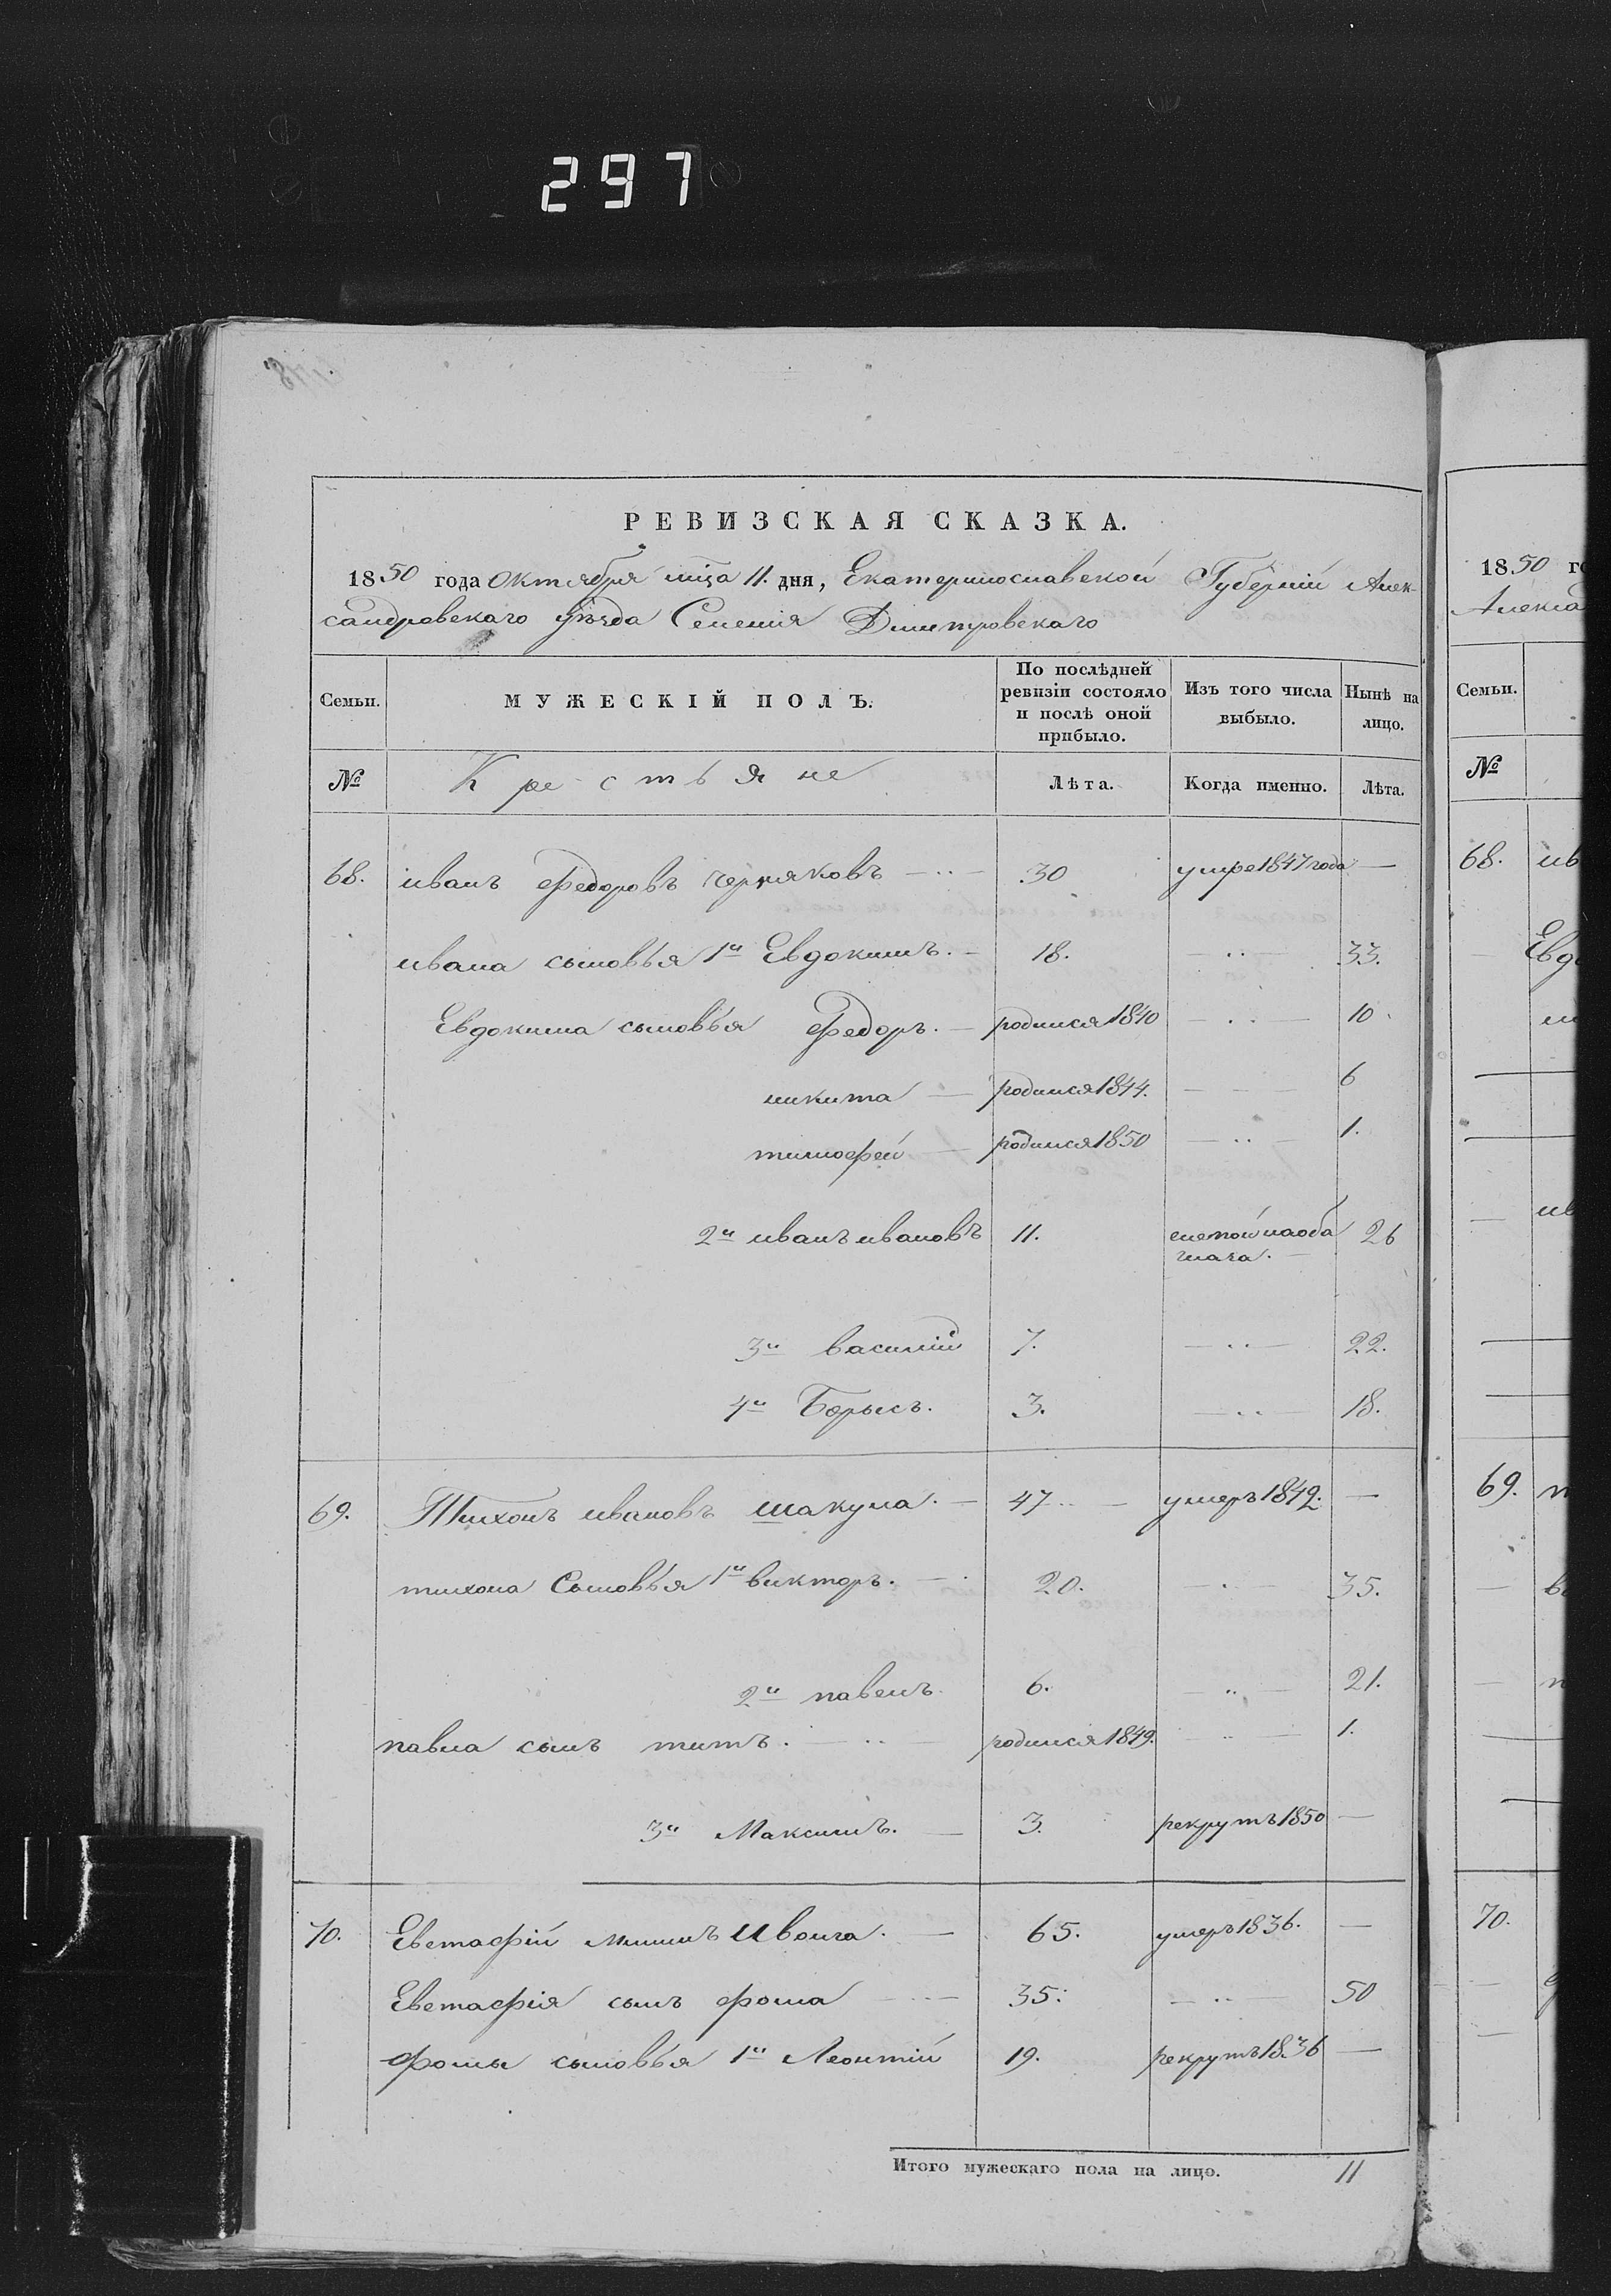 297
РЕВИЗСКАЯ СКАЗКА.
1850 года Октября мца 11. дня, Екатеринославской Губерніи Алек-
сандровскаго уѣзда Селенія Дмитровскаго
Семьи.
МУЖЕСКІЙ ПОЛЪ.
По послѣдней ревизіи состояло и послѣ оной прибыло.
Изъ того числа выбыло.
Нынѣ на лицо.
№
Крестьяне
Лѣта.
Когда именно.
Лѣта.
68. иванъ Федоровъ Черняковъ — 30 умре 1847 года —
ивана сыновья 1й Евдокимъ. — 18. — 33.
Евдокима сыновья Федоръ. — родился 1840 — 10.
никита — родился 1844. — 6
тимофей — родился 1850 — 1.
2й иванъ ивановъ 11. слепой на оба 26
глаза.
3й василій 7. — 22.
4й Борысъ. 3. — 18.
69. Тихонъ ивановъ шакула. — 47 — умеръ 1849. —
тихона Сыновья 1й викторъ. — 20. 35.
2й павелъ. 6. — 21.
павла сынъ титъ. — родился 1849. — 1.
3й Максимъ. — 3. рекрутъ 1850 —
70. Евстафій Ивонга. — 65. умеръ 1836. —
Евстафія сынъ фома — 35. — 50
фомы сыновья 1й Леонтій 19. рекрутъ 1836 —
Итого мужескаго пола на лицо. 11
1850 го
Алекса
Семьи.
№
68. ив
Евдо
69.
70.